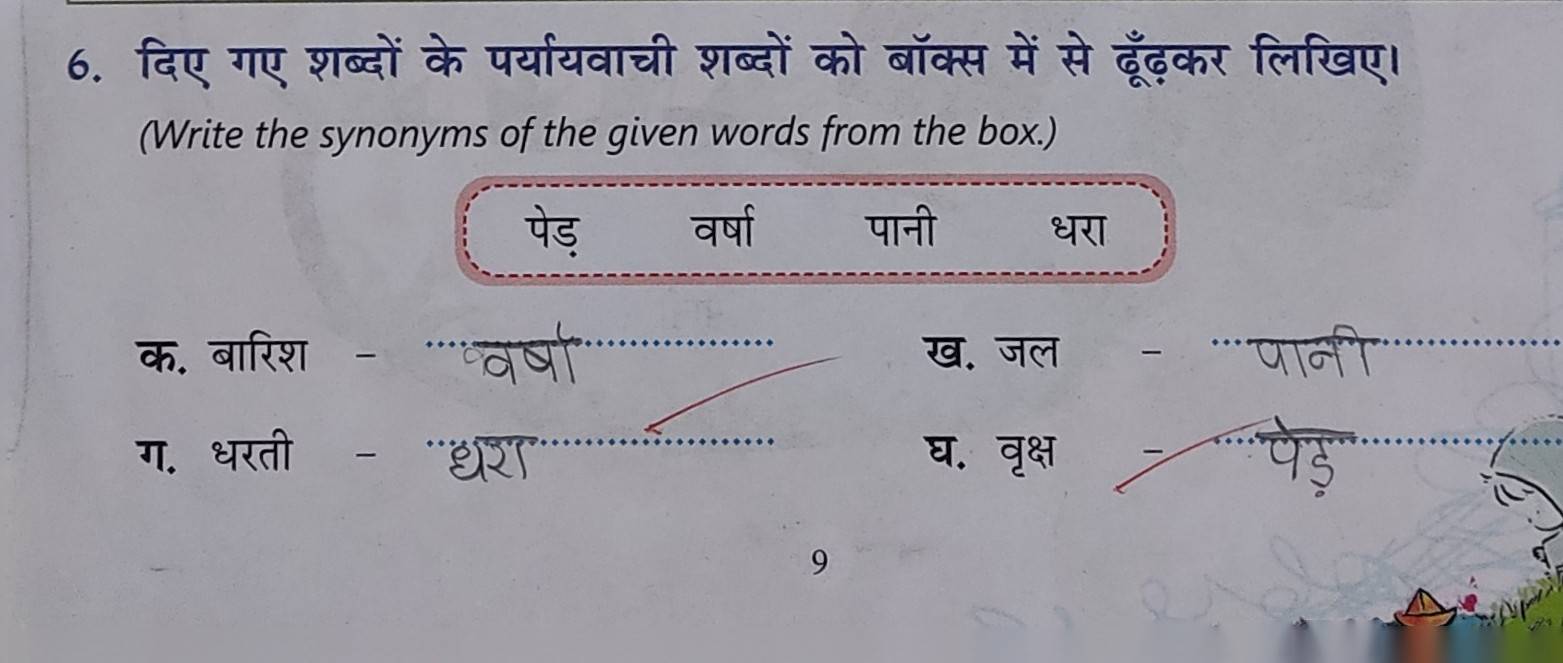 6. दिए गए शब्दों के पर्यायवाची शब्दों को बॉक्स में से ढूँढ़कर लिखिए।
(Write the synonyms of the given words from the box.)
पेड़ वर्षा पानी धरा
क. बारिश - वर्षा ख. जल - पानी
ग. धरती - धरा घ. वृक्ष - पेड़
9